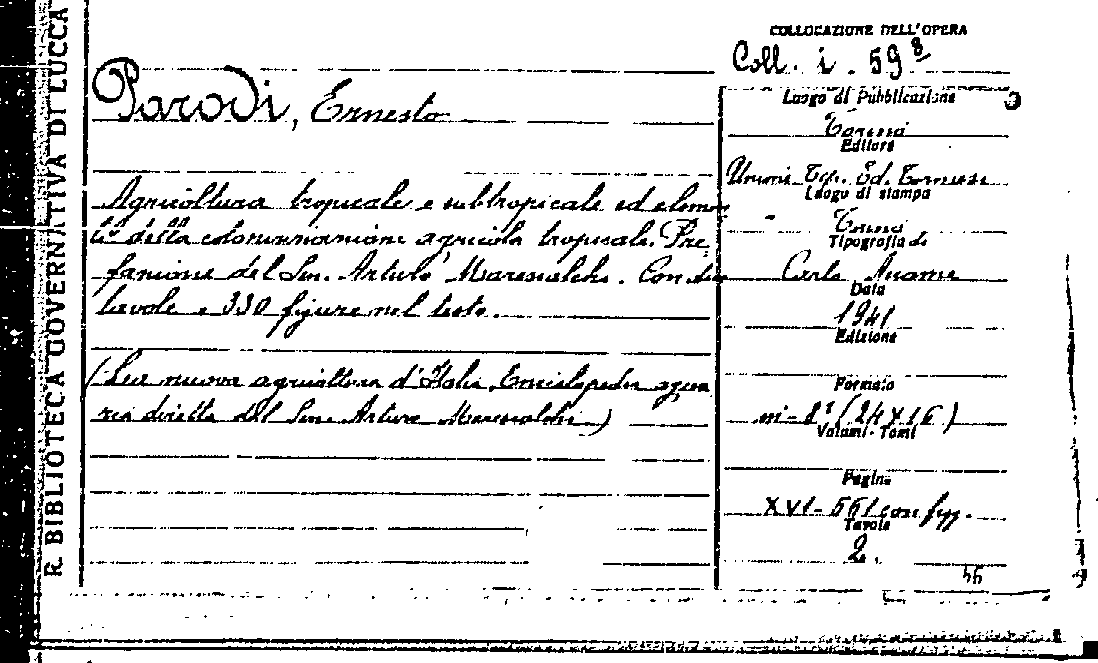 R. BIBLIOTECA GOVERNATIVA DI LUCCA
COLLOCAZIONE DELL'OPERA
Coll. i. 59⁸
Parodi, Ernesto
Agricoltura tropicale e subtropicale ed elemen
ti della colonizzazione agricola tropicale. Pre
fazione del Sen. Arturo Marescalchi. Con due
tavole e 330 figure nel testo.
(La nuova agricoltura d'Italia. Enciclopedia agra
ria diretta dal Sen. Arturo Marescalchi)
Luogo di Pubblicazione
Torino
Editore
Unione Tip. Ed. Torinese
Luogo di stampa
Torino
Tipografia di
Carlo
Data
1941
Edizione
Formato
in-8° (24x16)
Volumi - Tomi
Pagine
XVI-561 con figg.
Tavole
2.